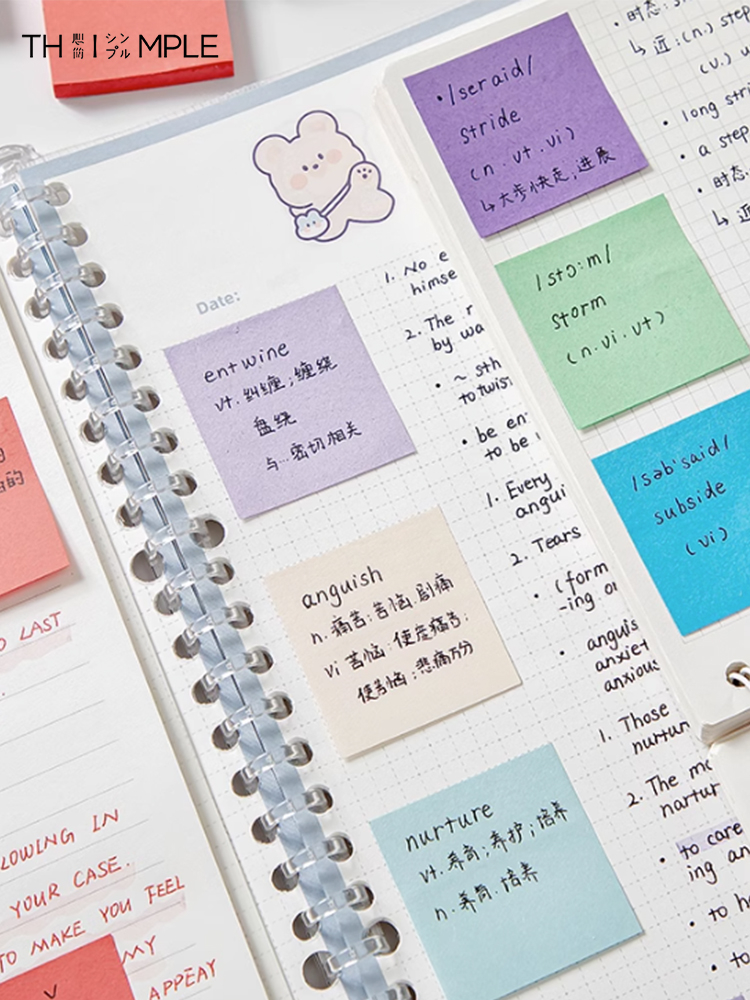 TH思简 I シンプル MPLE
Date:
entwine
vt. 纠缠；缠绕
盘绕
与…密切相关
anguish
n. 痛苦；苦恼．剧痛
vi 苦恼．使感痛苦；
使苦恼；悲痛万分
nurture
vt. 养育；养护；培养
n. 养育．培养
1. No
himse
2. The
by wa
• ~ sth
to twis
• be en
to be
1. Every
angui
2. Tears
• (form
-ing o
• anguis
anxiet
anxiou
1. Those
nurtur
2. The mo
nartur
• to care
ing an
• to h
• to
• /seraid/
stride
(n. vt. vi)
↳大步快走，进展
/stɔ:m/
storm
(n. vi. vt)
/səb'said/
subside
(vi)
• 时态:
↳ 近:(n.) step
(v.)
• long stri
• a step
• 时态.
↳ 近
的
O LAST
LOWING IN
YOUR CASE.
TO MAKE YOU FEEL
MY
APPEAY